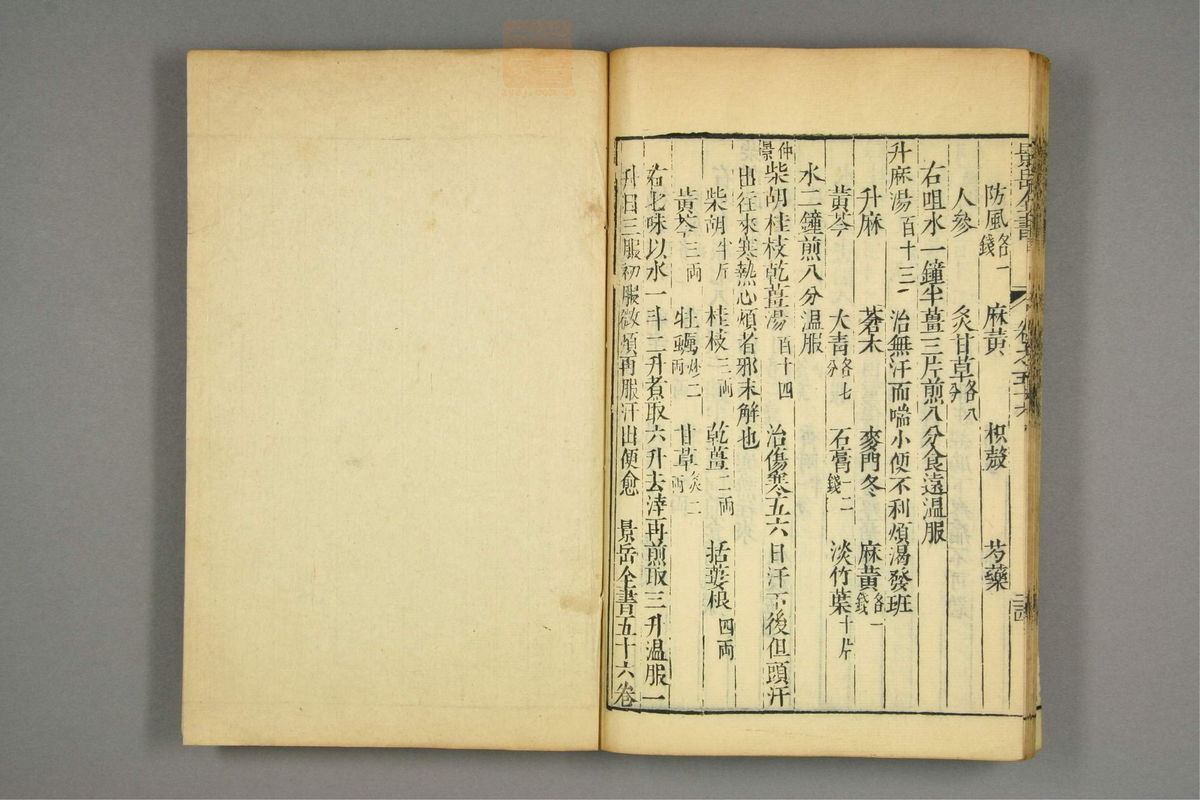 景岳全書 卷之五十六
防風各一錢 麻黃 枳殼 芍藥
人參 炙甘草各八分
右咀水一鐘半薑三片煎八分食遠溫服
升麻湯百十三 治無汗而喘小便不利煩渴發班
升麻 蒼朮 麥門冬 麻黃各一錢
黃芩 大青各七分 石膏一二錢 淡竹葉十片
水二鐘煎八分溫服
仲景柴胡桂枝乾薑湯百十四 治傷寒五六日汗下後但頭汗
出往來寒熱心煩者邪未解也
柴胡半斤 桂枝三兩 乾薑二兩 括蔞根四兩
黃芩三兩 牡蠣炒二兩 甘草炙二兩
右七味以水一斗二升煮取六升去滓再煎取三升溫服一
升日三服初服微煩再服汗出便愈 景岳全書五十六卷